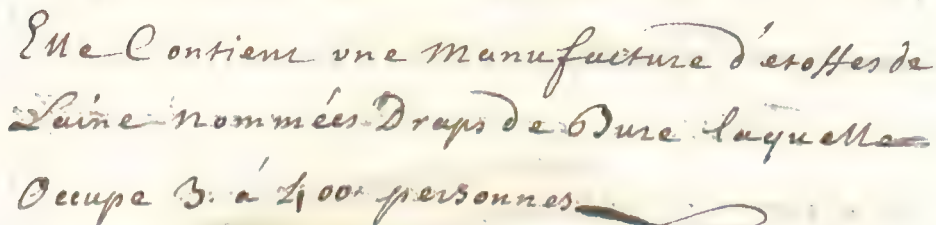 Elle Contient une Manufacture d'étoffes de
Laine nommées Draps de Bure laquelle
Occupe 3. à 400. personnes